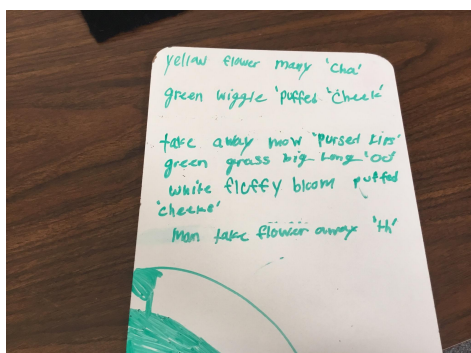 yellow flower many 'Cha'
green wiggle 'puffed 'Cheek'
take away mow 'pursed Lips'
green grass big long 'oo'
white fluffy bloom puffed
'cheeke'
Man take flower away 'th'